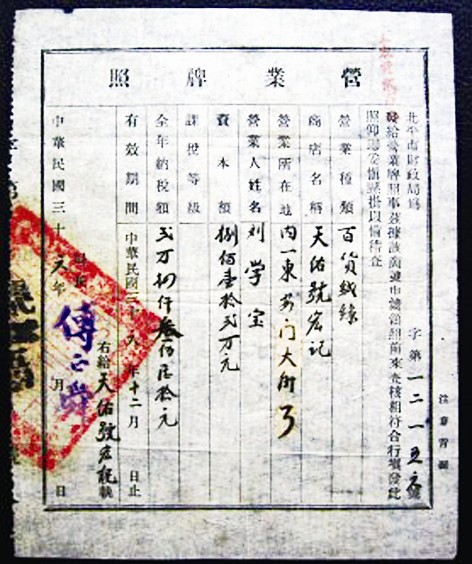 營業牌照
注意背面
字第一二一五六號
北平市財政局為
發給營業牌照事茲據該商遵章請領牌照前來查核相符合行填發此
照仰即妥領懸掛以備待查
營業種類 百貨絨線
商店名稱 天佑號宏記
營業所在地 內一東安门大街
營業人姓名 刘学宝
資本額 捌佰壹拾弍万元
課稅等級
全年納稅額 弍万捌仟叁佰伍拾元
有效期間 中華民國三十六年十二月 日止
右給天佑號宏記執
局長 傅正舜
中華民國三十六年 月 日